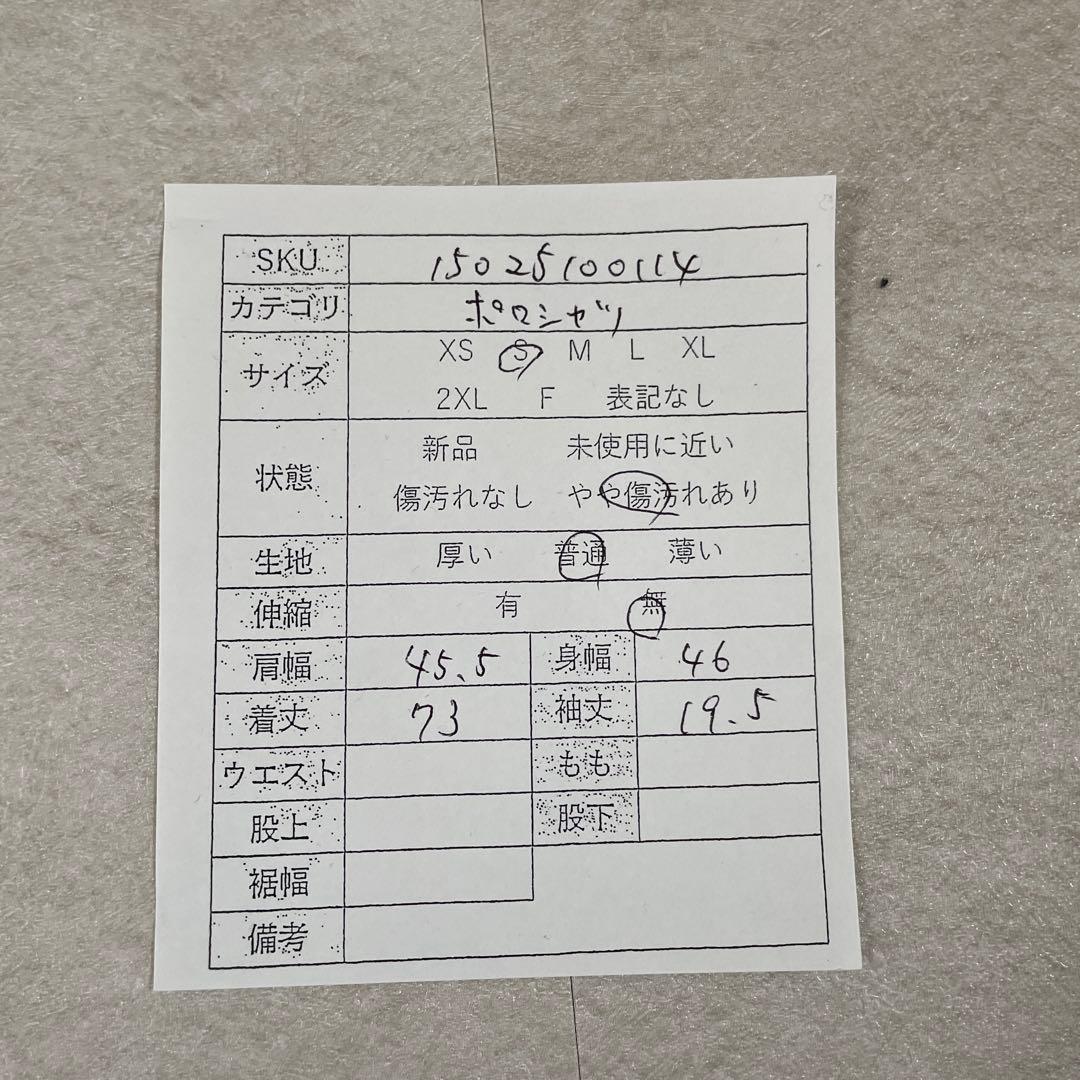 SKU 15025100114
カテゴリ ポロシャツ
サイズ XS S M L XL
2XL F 表記なし
状態 新品 未使用に近い
傷汚れなし やや傷汚れあり
生地 厚い 普通 薄い
伸縮 有 無
肩幅 45.5 身幅 46
着丈 73 袖丈 19.5
ウエスト もも
股上 股下
裾幅
備考